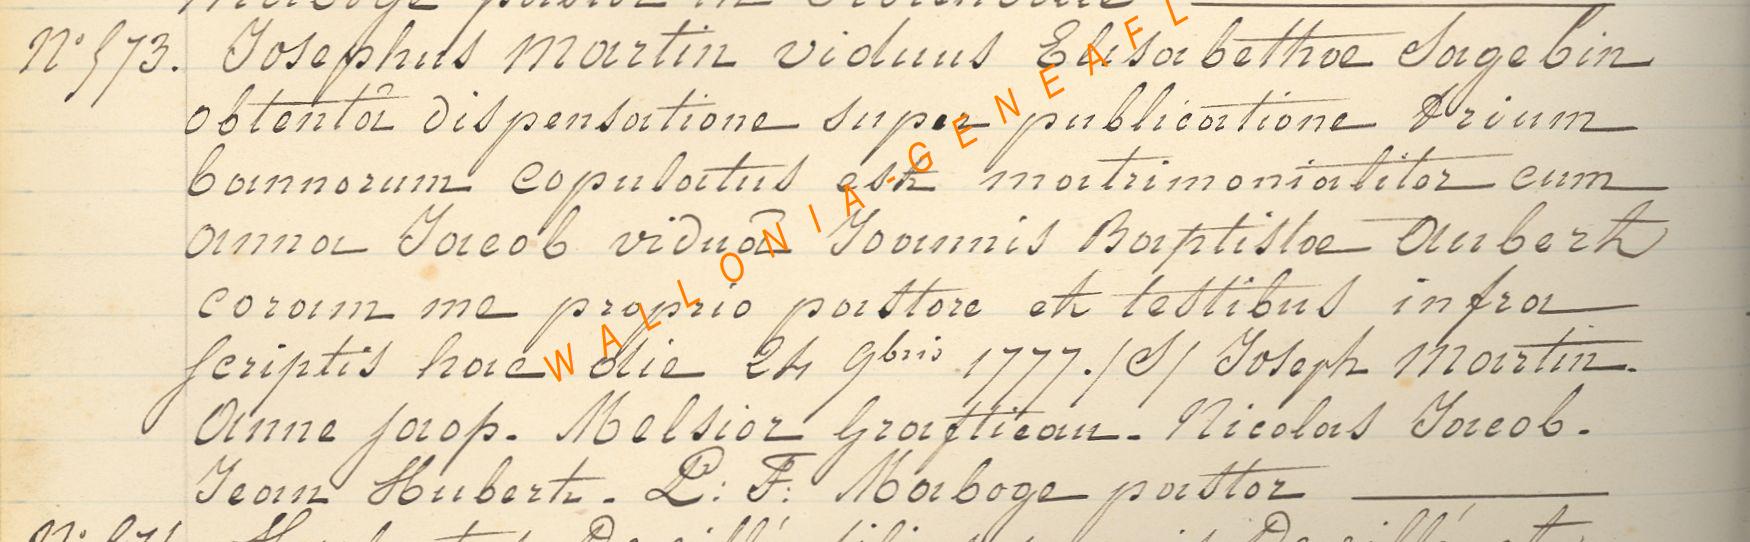 Maboge pastor in
N° 573. Josephus Martin viduus Elisabethae Sagebin
obtentâ dispensatione super publicatione trium
bannorum copulatus est matrimonialiter cum
anna Jacob viduâ Joannis Baptistae Aubert
coram me proprio pastore et testibus infra
scriptis hac die 24 9bris 1777. /S/ Joseph Martin.
Anne jaop. Melsior Grafticau. Nicolas Jacob.
Jean Hubert. L: F: Maboge pastor
WALLONIA-GENEAFL